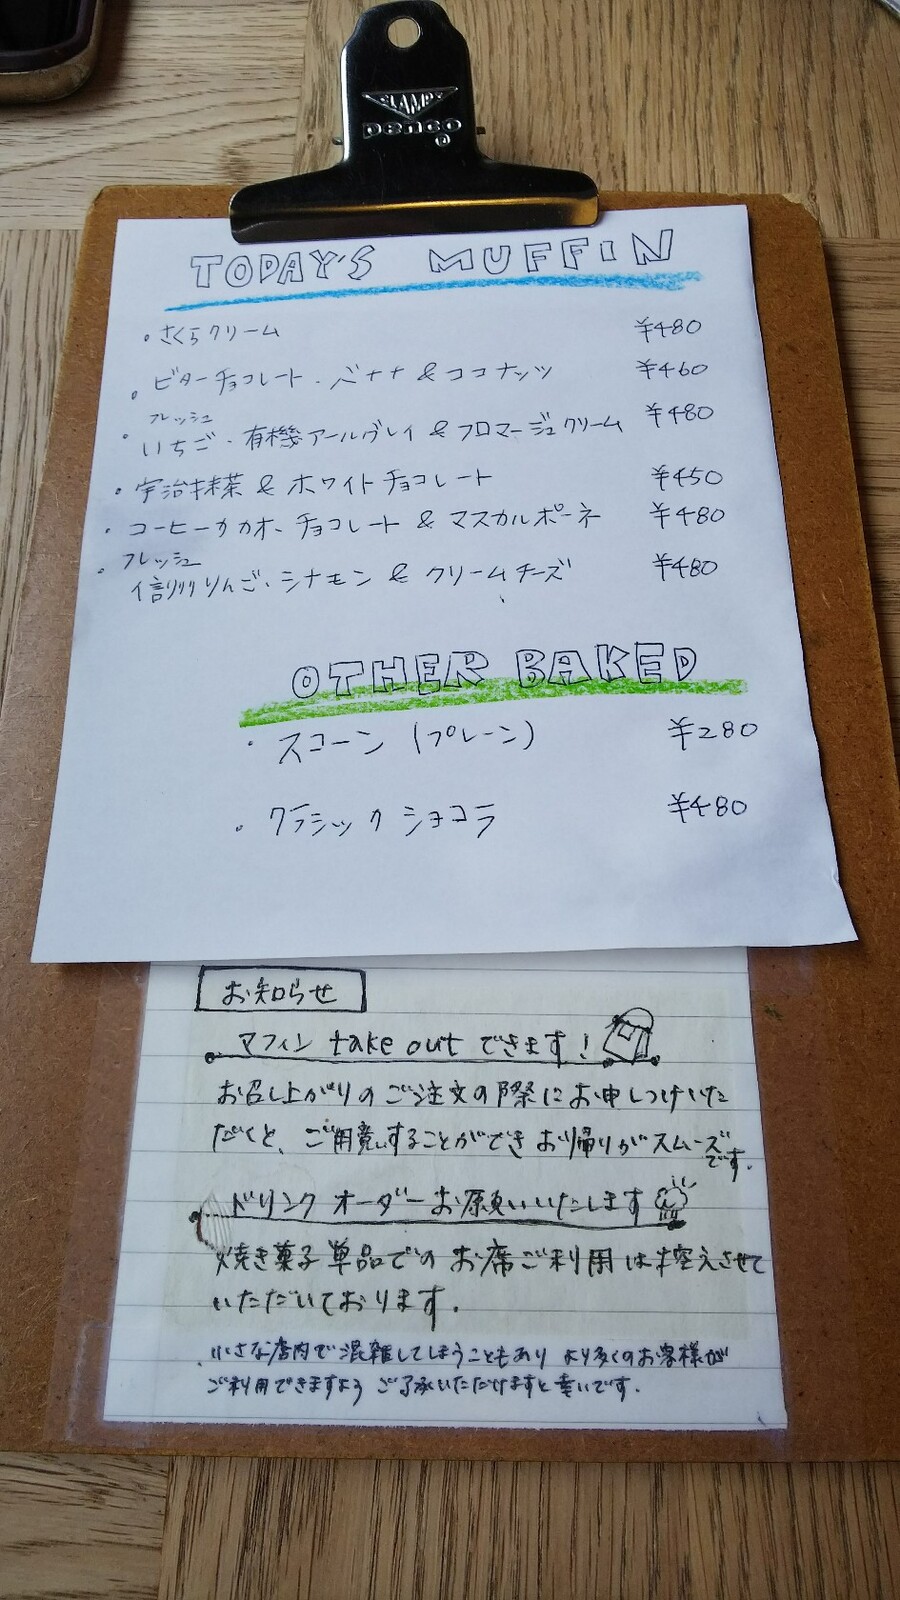 CLAMPS
penco
TODAY'S MUFFIN
・さくらクリーム ¥480
・ビターチョコレート・バナナ & ココナッツ ¥460
フレッシュ
・いちご・有機アールグレイ & フロマージュクリーム ¥480
・宇治抹茶 & ホワイトチョコレート ¥450
・コーヒーカカオ・チョコレート & マスカルポーネ ¥480
フレッシュ
・信州りんご・シナモン & クリームチーズ ¥480
OTHER BAKED
・スコーン (プレーン) ¥280
・クラシックショコラ ¥480
お知らせ
マフィン take out できます!
お召し上がりのご注文の際にお申しつけいた
だくと、ご用意することができお帰りがスムーズ
です。
ドリンクオーダーお願いいたします
焼き菓子単品でのお席ご利用は控えさせて
いただいております。
小さな店内で混雑してしまうこともあり より多くのお客様が
ご利用できますよう ご了承いただけますと幸いです.